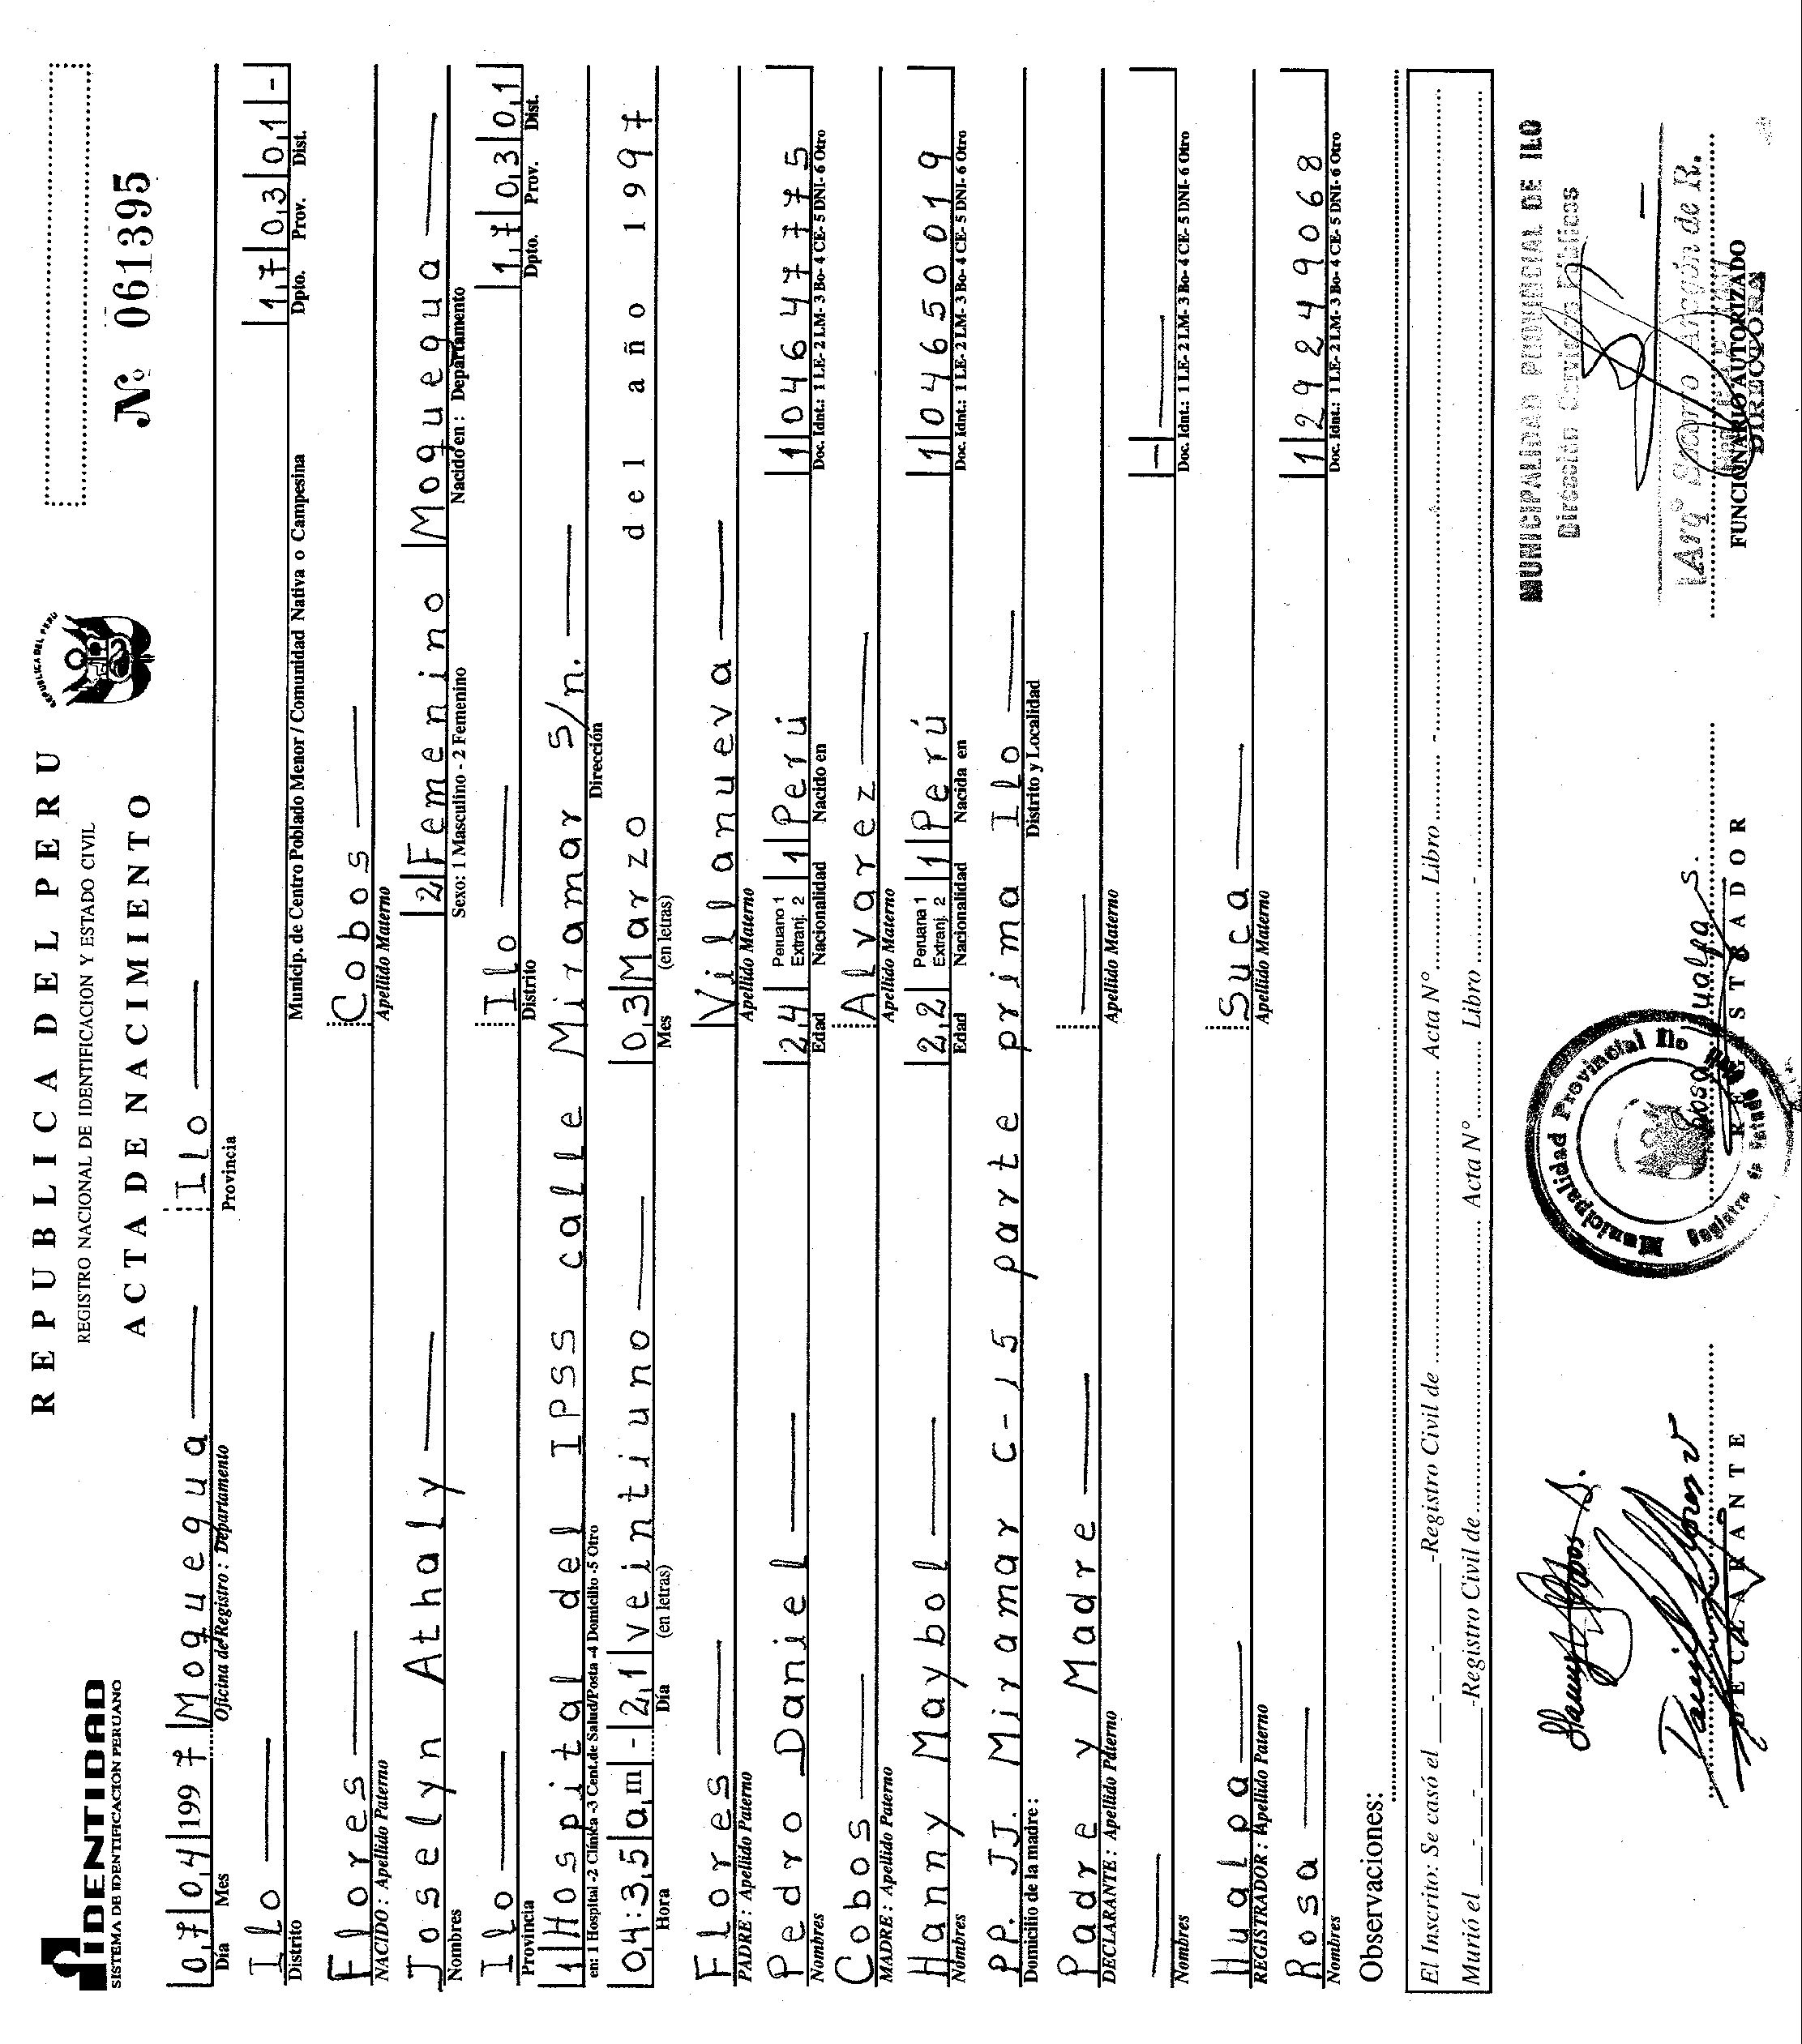 IDENTIDAD
SISTEMA DE IDENTIFICACION PERUANO
REPUBLICA DEL PERU
REGISTRO NACIONAL DE IDENTIFICACION Y ESTADO CIVIL
ACTA DE NACIMIENTO
REPUBLICA DEL PERU
Nº 061395
07 04 1997 Moquegua Ilo
Día Mes Oficina de Registro : Departamento Provincia
Ilo 17 03 01 -
Distrito Municip. de Centro Poblado Menor / Comunidad Nativa o Campesina Dpto. Prov. Dist.
Flores Cobos
NACIDO : Apellido Paterno Apellido Materno
Joselyn Athaly 2 Femenino Moquegua
Nombres Sexo: 1 Masculino - 2 Femenino Nacido en : Departamento
Ilo Ilo 17 03 01
Provincia Distrito Dpto. Prov. Dist.
1 Hospital del IPSS calle Miramar S/n.
en: 1 Hospital -2 Clínica -3 Cent.de Salud/Posta -4 Domicilio -5 Otro Dirección
04:35 a,m - 21 veintiuno 03 Marzo del año 1997
Hora Día (en letras) Mes (en letras)
Flores Villanueva
PADRE : Apellido Paterno Apellido Materno
Pedro Daniel 24 Peruano 1 Extranj. 2 1 Perú 1 04647775
Nombres Edad Nacionalidad Nacido en Doc. Idnt.: 1 LE- 2 LM- 3 Bo- 4 CE- 5 DNI- 6 Otro
Cobos Alvarez
MADRE : Apellido Paterno Apellido Materno
Hanny Maybol 22 Peruana 1 Extranj. 2 1 Perú 1 04650019
Nombres Edad Nacionalidad Nacida en Doc. Idnt.: 1 LE- 2 LM- 3 Bo- 4 CE- 5 DNI- 6 Otro
PP. JJ. Miramar C-15 parte prima Ilo
Domicilio de la madre : Distrito y Localidad
Padre y Madre
DECLARANTE : Apellido Paterno Apellido Materno
-
Nombres Doc. Idnt.: 1 LE- 2 LM- 3 Bo- 4 CE- 5 DNI- 6 Otro
Hualpa Suca
REGISTRADOR : Apellido Paterno Apellido Materno
Rosa 1 29249068
Nombres Doc. Idnt.: 1 LE- 2 LM- 3 Bo- 4 CE- 5 DNI- 6 Otro
Observaciones:
El Inscrito: Se casó el -Registro Civil de Acta Nº Libro
Murió el -Registro Civil de Acta Nº Libro
MUNICIPALIDAD PROVINCIAL DE ILO
Dirección Servicios Públicos
Municipalidad Provincial Ilo
Rosa Hualpa S.
DECLARANTE
REGISTRADOR
FUNCIONARIO AUTORIZADO
DIRECTORA